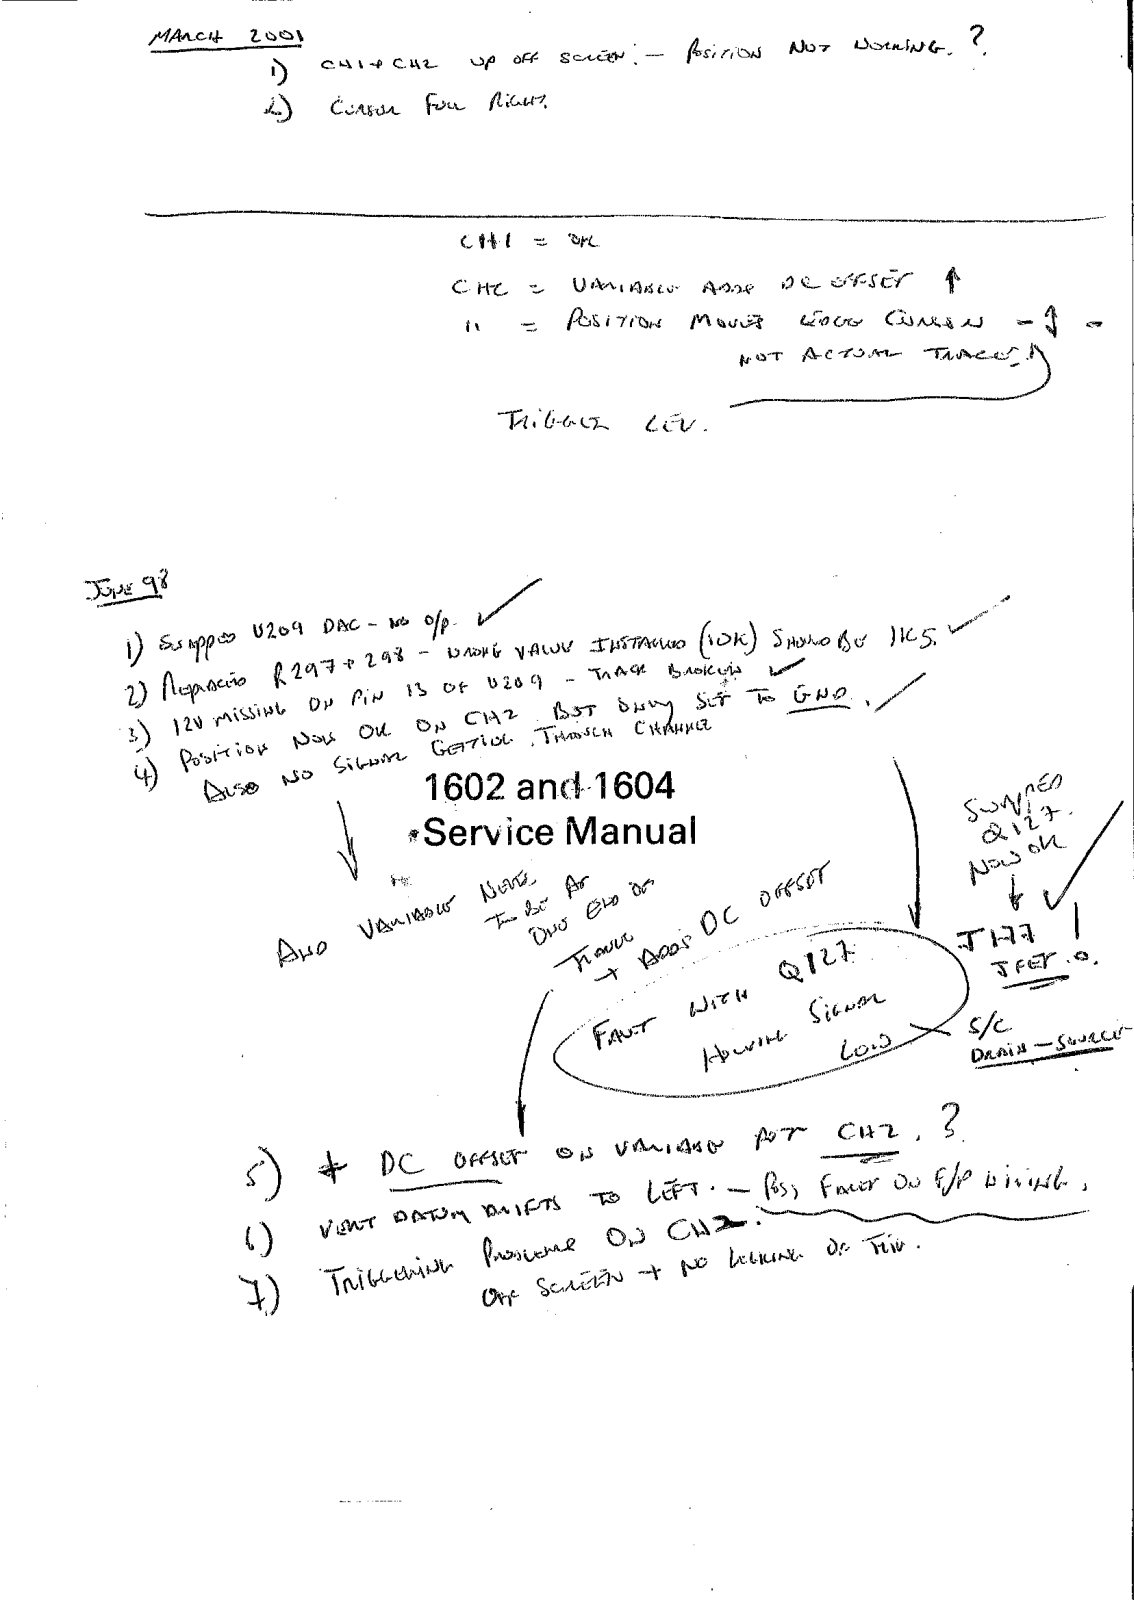 MARCH 2001
1) CH1 + CH2 UP OFF SCREEN. - POSITION NOT WORKING. ?
2) CURSOR FULL RIGHT.
CH1 = OK
CH2 = VARIABLE ADDS DC OFFSET ↑
" = POSITION MOVES CURSOR - ↕ -
NOT ACTUAL TRACE!
TRIGGER LEV.
JUNE 98
1) SWAPPED U209 DAC - NO O/P. ✓
2) REPLACED R297 + 298 - WRONG VALUE INSTALLED (10K) SHOULD BE 1K5. ✓
3) 12V MISSING ON PIN 13 OF U209 - TRACK BROKEN ✓
4) POSITION NOW OK ON CH2 BUT ONLY SET TO GND.
ALSO NO SIGNAL GETTING THROUGH CHANNEL
1602 and 1604
Service Manual
SWAPPED
Q127.
NOW OK
J177
JFET.
AND VARIABLE NEEDS
TO BE AT
ONE END OF
TRAVEL
+ ADDS DC OFFSET
FAULT WITH Q127
HOLVING SIGNAL
LOW
S/C
DRAIN - SOURCE
5) + DC OFFSET ON VARIABLE POT CH2. ?
6) VERT DATUM DRIFTS TO LEFT. - POSS FAULT ON F/P WIRING.
7) TRIGGERING PROBLEMS ON CH2.
OFF SCREEN + NO LOCKING OF TRIG.